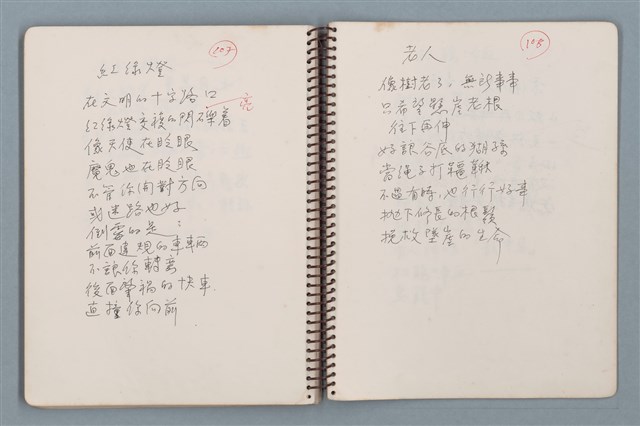 107
紅綠燈
在文明的十字路口
亮
紅綠燈交換的閃爍着
像天使在眨眼
魔鬼也在眨眼
不管你開對方向
或迷路也好
倒霉的是——:
前面違規的車輛
不讓你轉彎
後面肇禍的快車
直撞你向前
108
老人
像樹老了，無所事事
只希望懸崖老根
往下再伸
好讓谷底的猢猻
當繩子打鞦韆
不過有時，也行行好事
拋下伸長的根鬚
挽救墜崖的生命